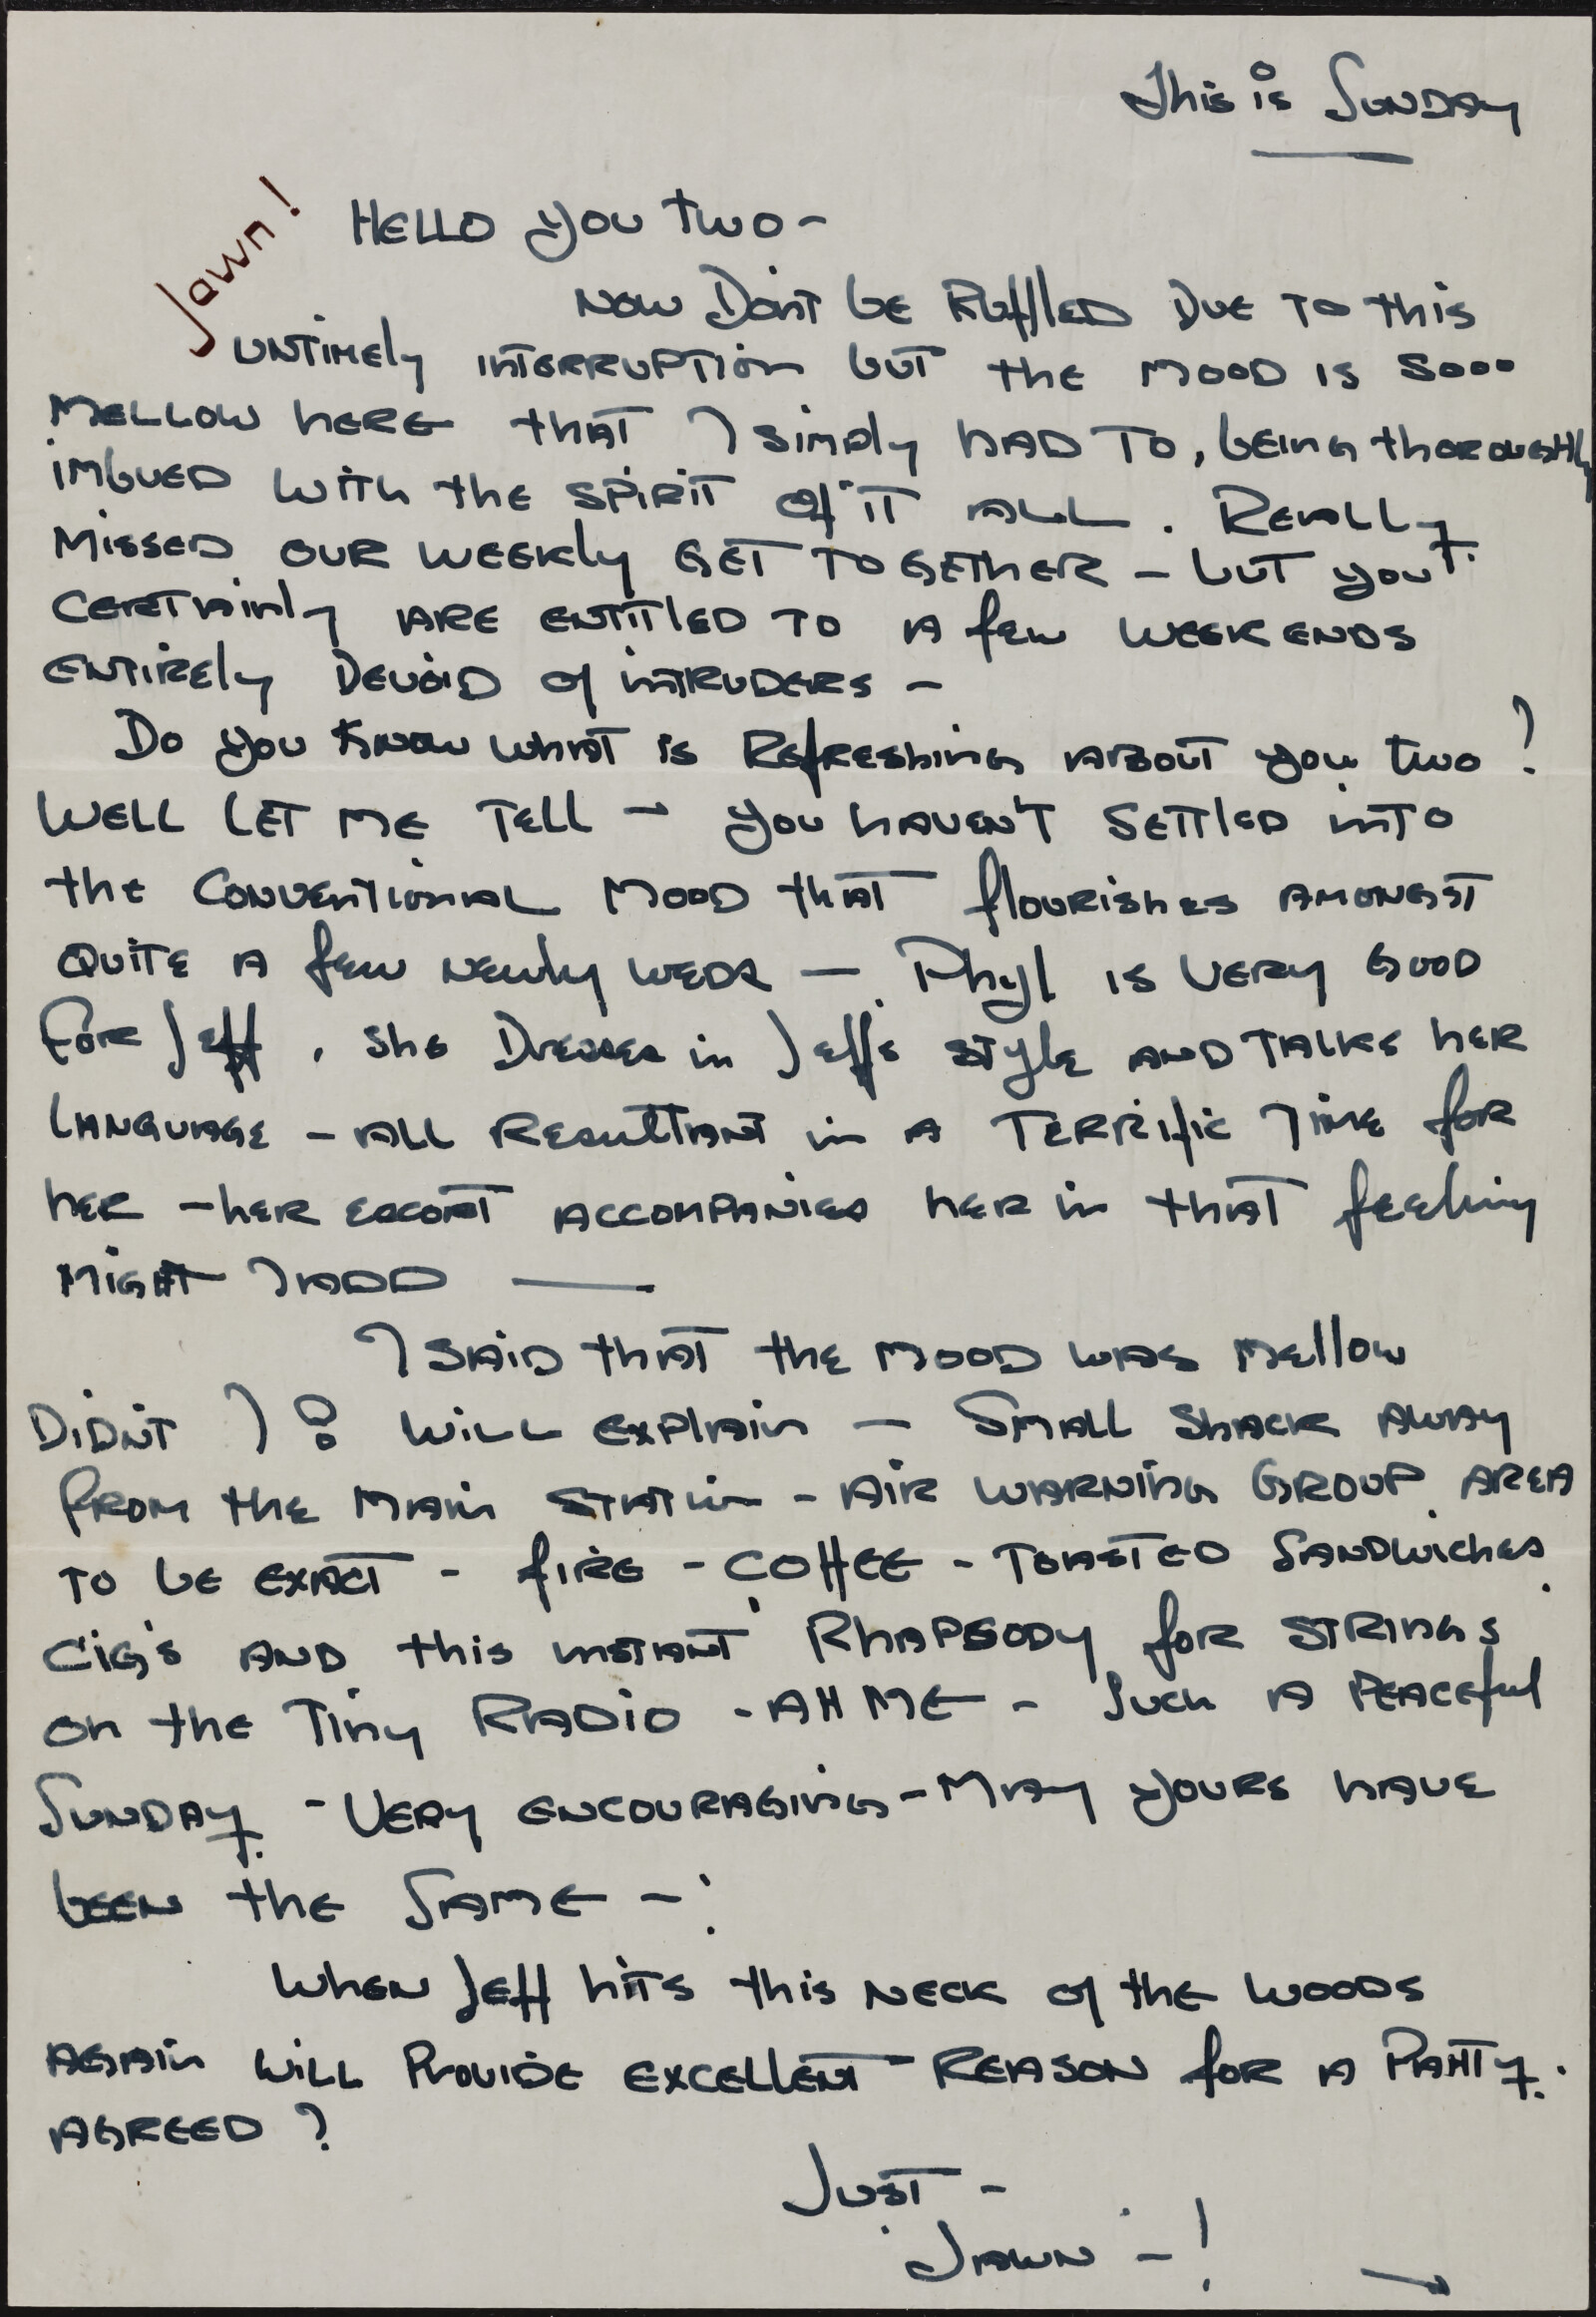 This is Sunday
Jawn!
Hello you two-
Now Don't be Ruffled Due to this
untimely interruption but the mood is sooo
mellow here that I simply had to, being thoroughly
imbued with the spirit of it all. Really
missed our weekly get together - but you
certainly are entitled to a few weekends
entirely devoid of intruders -
Do you know what is Refreshing about you two?
Well let me tell - you haven't settled into
the conventional mood that flourishes amongst
quite a few newly weds - Phyl is very good
for Jeff, she Dresses in Jeff's style and talks her
language - all resultant in a terrific time for
her - her escort accompanies her in that feeling
might I add —
I said that the mood was mellow
Didn't I? Will explain - Small shack away
from the main station - Air Warning Group area
to be exact - fire - coffee - toasted sandwiches
cig's and this instant Rhapsody for strings
on the tiny Radio - Ah me - such a peaceful
Sunday. - Very encouraging - May yours have
been the same -:
When Jeff hits this neck of the woods
again will provide excellent reason for a party.
Agreed?
Just -
Jawn - !